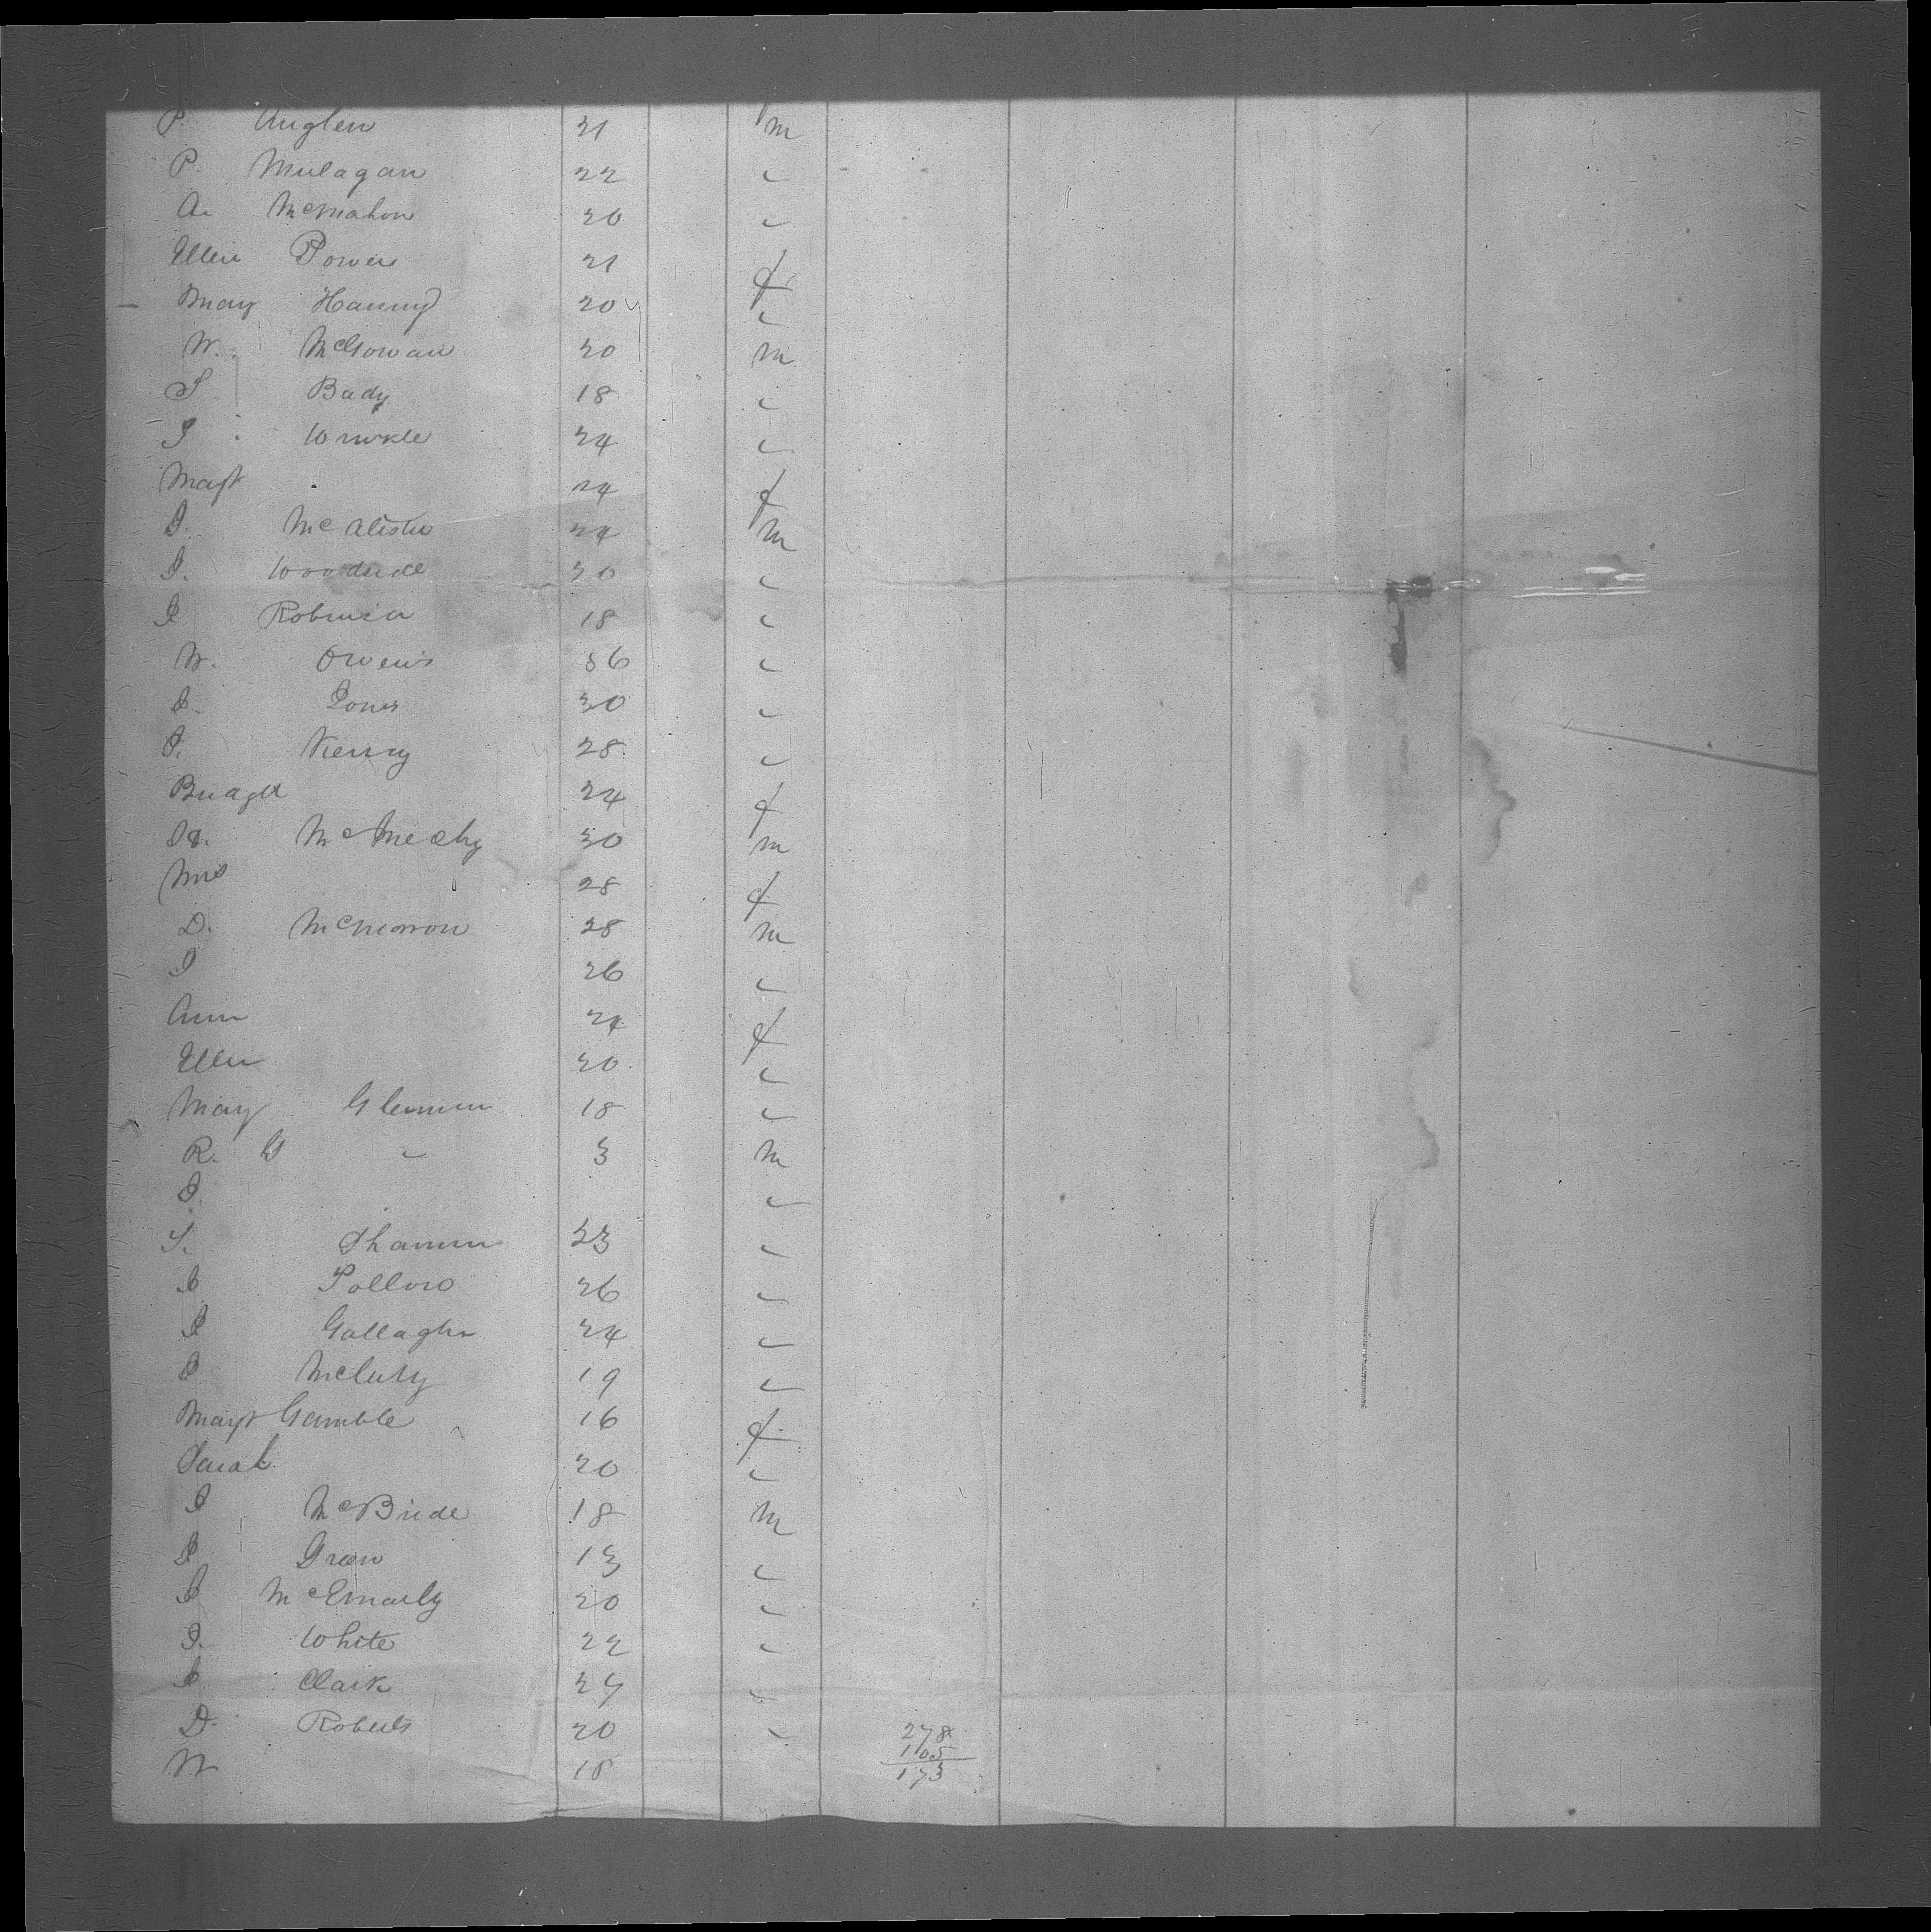 P. Anglen 21 m
P. Mulagan 22 "
A. McMahon 20 "
Ellen Power 21 f
Mary Hanny 20 "
W. McGowan 20 m
S Bady 18 "
J Winkle 24 "
Magt 24 f
J. McAlister 24 m
J. Woodside 30 "
J Robinson 18 "
W. Owens 36 "
J. Jones 30 "
J. Kenny 28 "
Bridget 24 f
30 m
Mrs 28 f
D. McMorrow 28 m
J 26 "
Ann 24 f
Ellen 20 "
Mary Glennen 18 "
R. G " 3 m
J. "
S. 23 "
J 26 "
J Gallagher 24 "
J 19 "
Magt Gamble 16 f
Sarah 20 "
J McBride 18 m
J Green 13 "
J 20 "
J. White 22 "
J Clark 24 "
D. Roberts 20 " 278
105
W 18 173